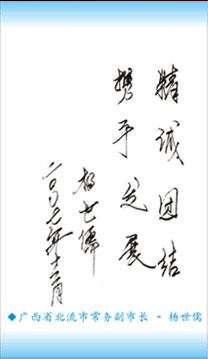 精诚团结
携手发展
杨世儒
二〇〇七年十二月
◆广西省北流市常务副市长 - 杨世儒